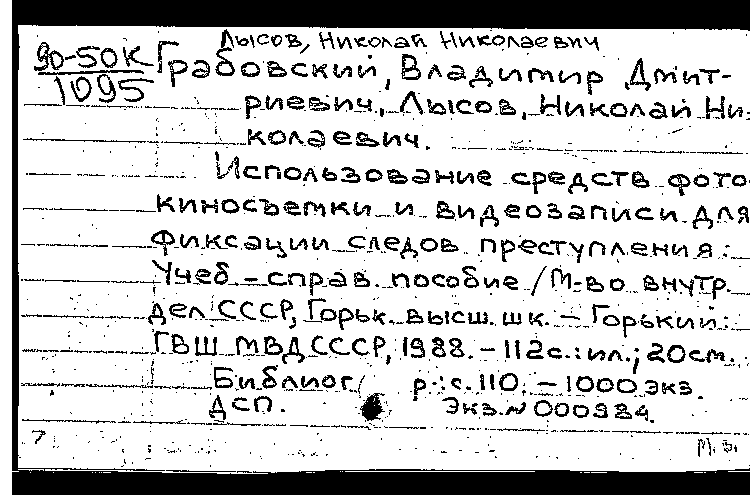 Лысов, Николай Николаевич
90-50К Грабовский, Владимир Дмит-
1095 риевич, Лысов, Николай Ни-
колаевич.
Использование средств фото-
киносъемки и видеозаписи для
фиксации следов преступления:
Учеб.-справ. пособие / М-во внутр.
дел СССР, Горьк. высш. шк. - Горький:
ГВШ МВД СССР, 1988. - 112 с.: ил.; 20 см.
Библиогр.: с. 110. - 1000 экз.
ДСП. Экз. № 000984.
7